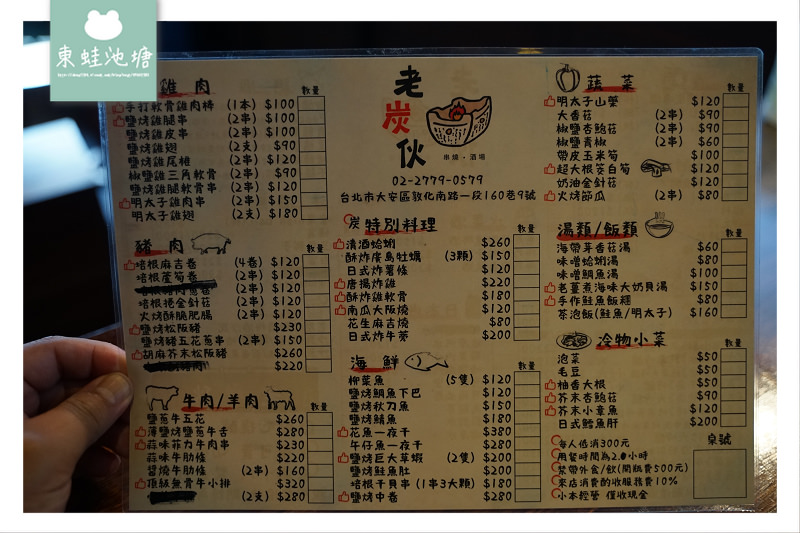 東蛙池塘
雞肉
數量
手打軟骨雞肉棒 (1本) $100
鹽烤雞腿串 (2串) $100
鹽烤雞皮串 (2串) $90
鹽烤雞翅 (2支) $90
鹽烤雞尾椎 (2串) $120
椒鹽雞三角軟骨 (2串) $90
鹽烤雞腿軟骨串 (2串) $120
明太子雞肉串 (2串) $150
明太子雞翅 (2支) $180
豬肉
數量
培根麻吉卷 (4卷) $120
培根蘆筍卷 (2串) $120
(2串) $120
培根捲金針菇 (2串) $120
火烤酥脆肥腸 (2串) $120
鹽烤松阪豬 $230
鹽烤豬五花蔥串 (2串) $150
胡麻芥末松阪豬 $260
$220
牛肉/羊肉
數量
鹽蔥牛五花 $260
薄鹽烤鹽蔥牛舌 $280
蒜味菲力牛肉串 $230
蒜味牛肋條 $220
醬燒牛肋條 (2串) $160
頂級無骨牛小排 $320
(2支) $280
老炭伙
串燒·酒場
02-2779-0579
台北市大安區敦化南路一段160巷9號
炭特別料理
數量
清酒蛤蜊 $260
酥炸廣島牡蠣 (3顆) $150
日式炸薯條 $120
唐揚炸雞 $220
酥炸雞軟骨 $180
南瓜大阪燒 $120
花生麻吉燒 $80
日式炸牛蒡 $200
海鮮
數量
柳葉魚 (5隻) $120
鹽烤鯛魚下巴 $120
鹽烤秋刀魚 $150
鹽烤鯖魚 $180
花魚一夜干 $380
午仔魚一夜干 $280
鹽烤巨大草蝦 (2隻) $200
鹽烤鮭魚肚 $200
培根干貝串 (1串3大顆) $180
鹽烤中卷 $280
蔬菜
數量
明太子山藥 $120
大香菇 (2串) $90
椒鹽杏鮑菇 $90
椒鹽青椒 (2串) $60
帶皮玉米筍 $100
超大根茭白筍 $120
奶油金針菇 $120
火烤節瓜 (2串) $80
湯類/飯類
數量
海帶芽香菇湯 $60
味噌蛤蜊湯 $80
味噌鯛魚湯 $100
老薑煮海味大奶貝湯 $150
手作鮭魚飯糰 $80
茶泡飯(鮭魚/明太子) $160
冷物小菜
數量
泡菜 $50
毛豆 $50
柚香大根 $50
芥末杏鮑菇 $90
芥末小章魚 $120
日式鱈魚肝 $200
每人低消300元
用餐時間為2.0小時
禁帶外食/飲(開瓶費500元)
來店消費酌收服務費10%
小本經營 僅收現金
桌號